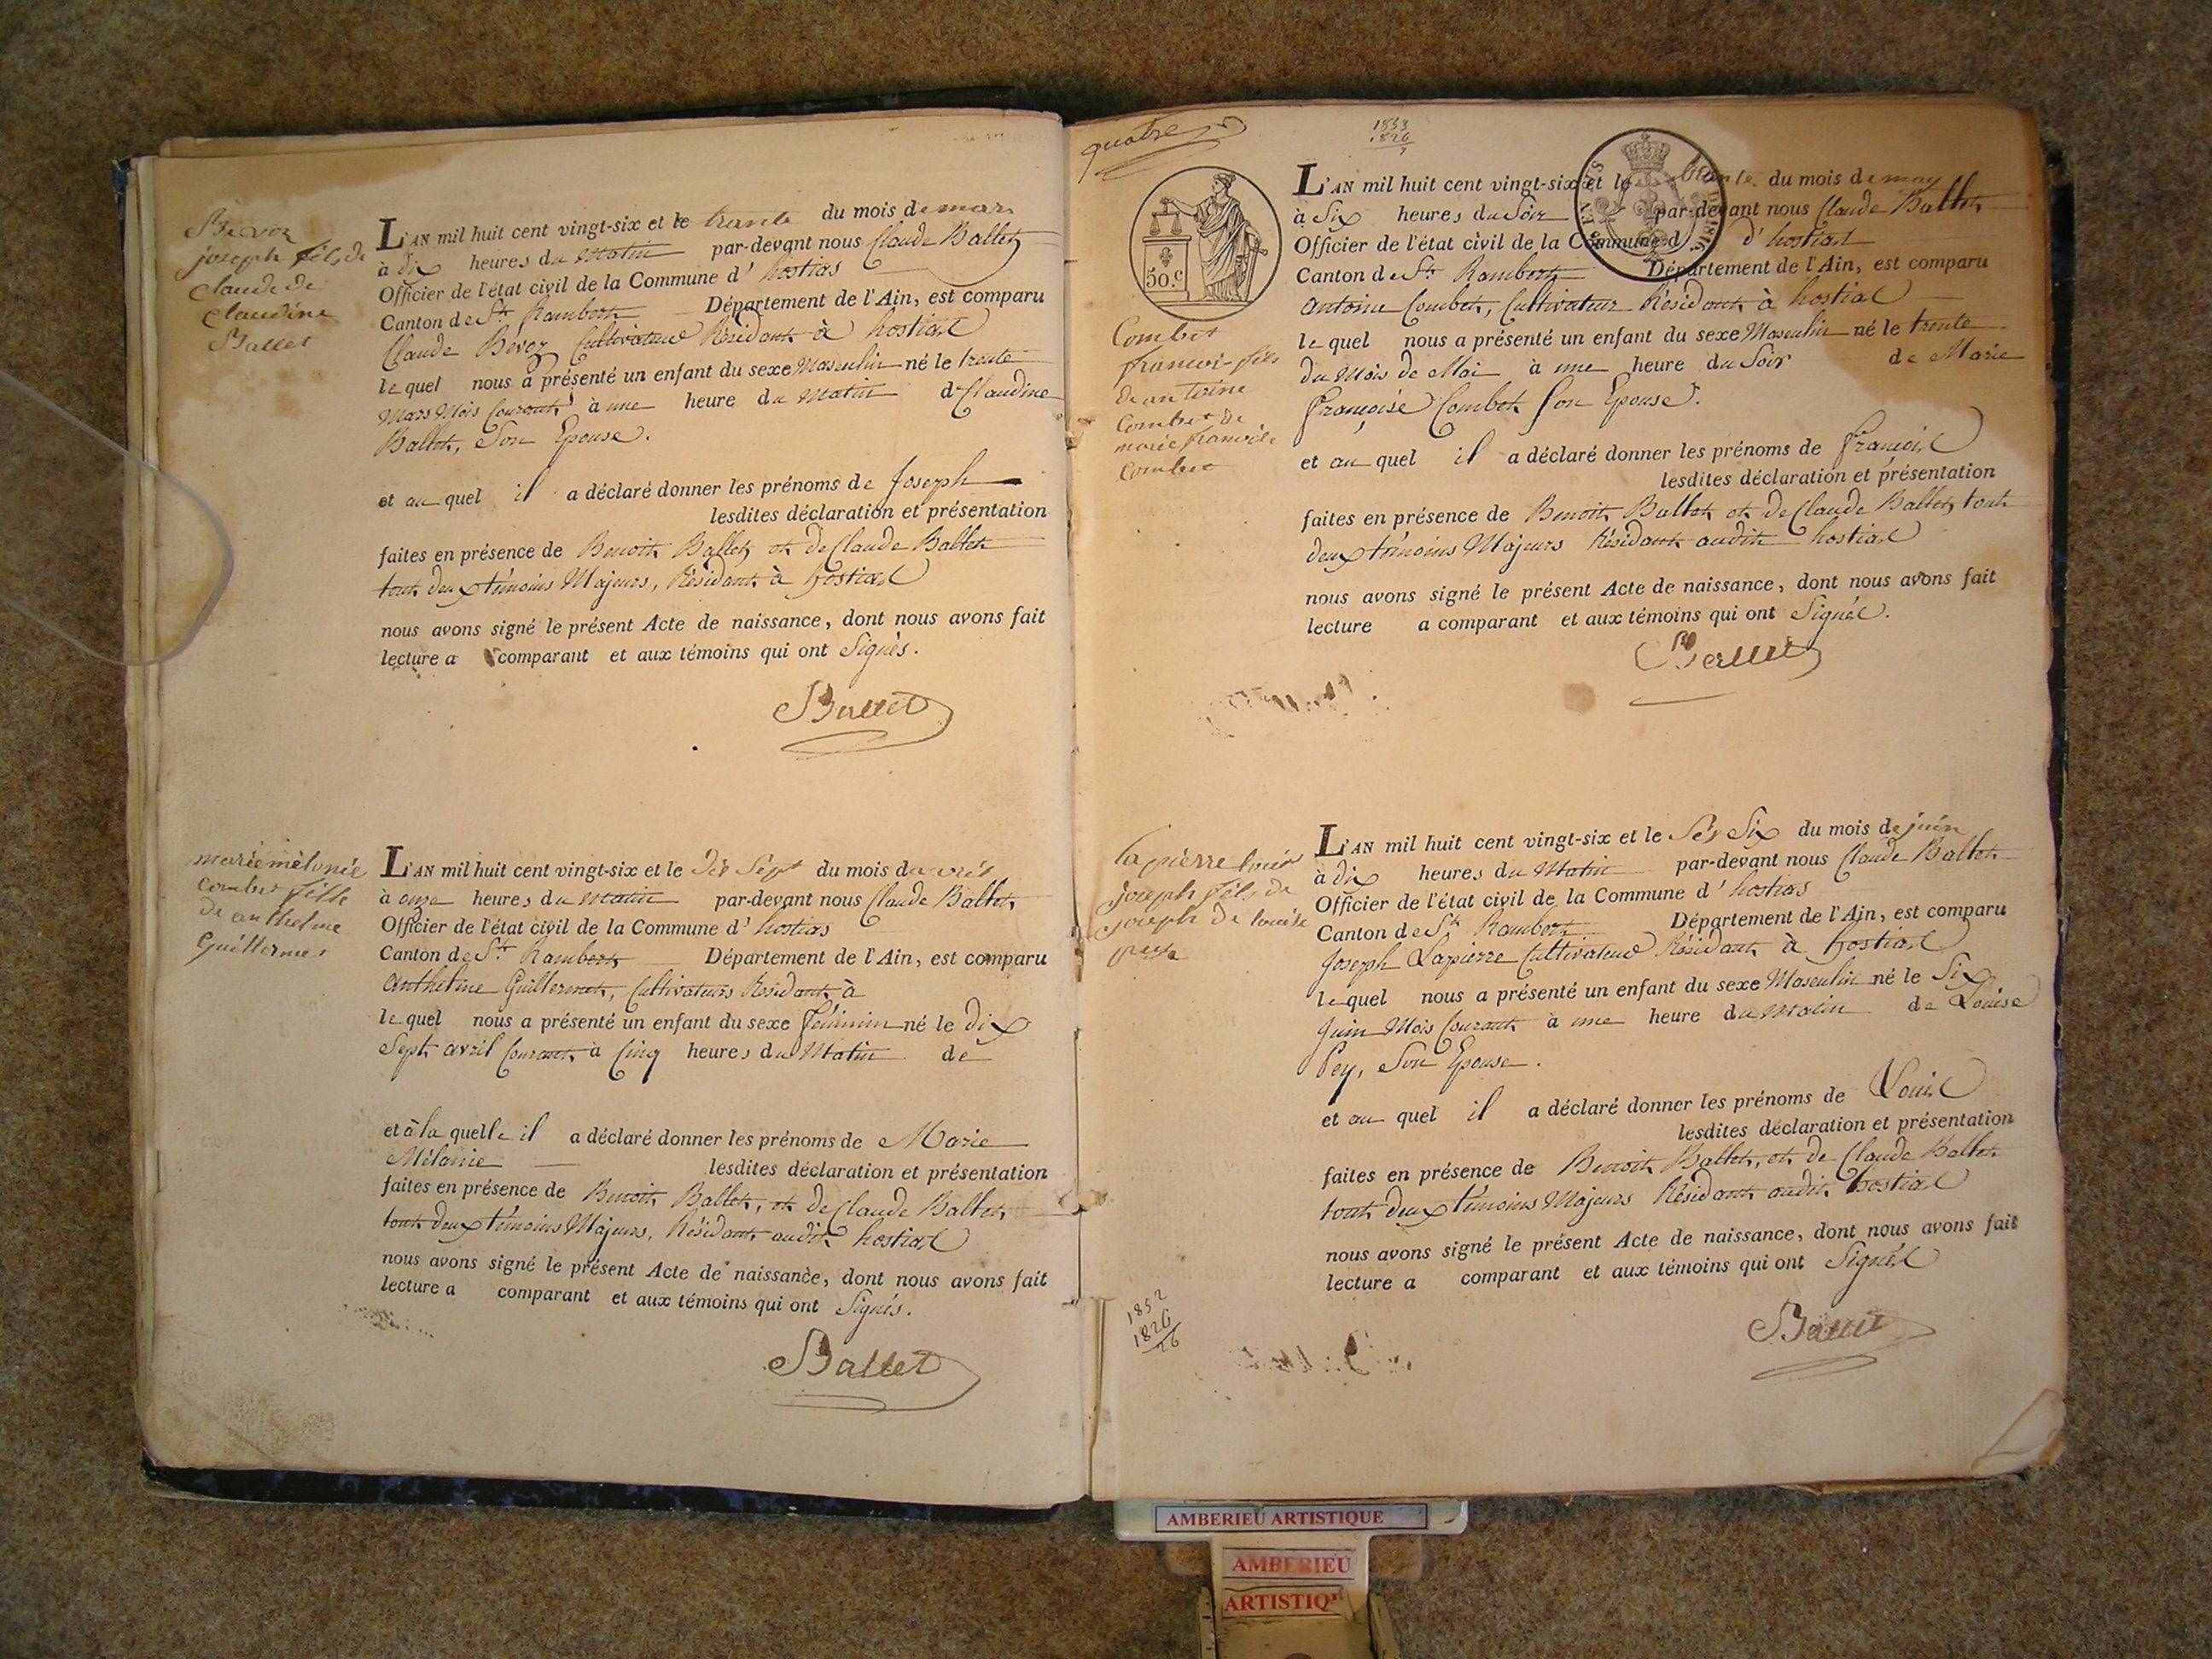 Bevoz
joseph fils de
claude de
claudine
Ballet
L'AN mil huit cent vingt-six et le trante du mois de mars
à dix heures du Matin par-devant nous Claude Ballet,
Officier de l'état civil de la Commune d' hostias
Canton de St Rambert Département de l'Ain, est comparu
Claude Bevoz Cultivateur Résidant à hostias
le quel nous a présenté un enfant du sexe Masculin né le trente
Mars Mois Courant à une heure du Matin d Claudine
Ballet, Son Epouse.
et au quel il a déclaré donner les prénoms de Joseph
lesdites déclaration et présentation
faites en présence de Benoit Ballet et de Claude Ballet
tout deux témoins Majeurs, Résidant à hostias
nous avons signé le présent Acte de naissance, dont nous avons fait
lecture a comparant et aux témoins qui ont Signés.
Ballet
marie mèlanie
combet fille
de anthelme
Guillermet
L'AN mil huit cent vingt-six et le Dix Sept du mois d avril
à onze heures du matin par-devant nous Claude Ballet,
Officier de l'état civil de la Commune d' hostias
Canton de St. Rambert Département de l'Ain, est comparu
Anthelme Guillermet, Cultivateurs Résidant à
le quel nous a présenté un enfant du sexe féminin né le dix
Sept avril Courant à Cinq heures du Matin de
et à la quelle il a déclaré donner les prénoms de Marie
Mélanie lesdites déclaration et présentation
faites en présence de Benoit Ballet, et de Claude Ballet,
tout deux témoins Majeurs, Résidant audit hostias
nous avons signé le présent Acte de naissance, dont nous avons fait
lecture a comparant et aux témoins qui ont Signés.
Ballet
quatre
1853
1826
50.c
Combet
francois fils
de antoine
Combet de
marie francoise
Combet
L'AN mil huit cent vingt-six et le trante du mois de may
à Six heures du Soir par-devant nous Claude Ballet,
Officier de l'état civil de la Commune d d' hostias
Canton de St Rambert Département de l'Ain, est comparu
Antoine Combet, Cultivateur Résidant à hostias
le quel nous a présenté un enfant du sexe Masculin né le trente
du Mois de Mai à une heure du Soir de Marie
Françoise Combet Son Epouse.
et au quel il a déclaré donner les prénoms de François
lesdites déclaration et présentation
faites en présence de Benoit Ballet et de Claude Ballet, tout
deux témoins Majeurs Résidant audit hostias
nous avons signé le présent Acte de naissance, dont nous avons fait
lecture a comparant et aux témoins qui ont Signés.
Ballet
lapierre louis
joseph fils de
joseph de louise
peye
L'AN mil huit cent vingt-six et le Six du mois de juin
à dix heures du Matin par-devant nous Claude Ballet
Officier de l'état civil de la Commune d' hostias
Canton de St Rambert Département de l'Ain, est comparu
Joseph Lapierre Cultivateur Résidant à hostias
le quel nous a présenté un enfant du sexe Masculin né le Six
Juin Mois Courant à une heure du matin de Louise
Pey, Son Epouse.
et au quel il a déclaré donner les prénoms de Louis
lesdites déclaration et présentation
faites en présence de Benoit Ballet, et de Claude Ballet
tout deux témoins Majeurs Résidant audit hostias
nous avons signé le présent Acte de naissance, dont nous avons fait
lecture a comparant et aux témoins qui ont Signés
Ballet
1852
1826
26
AMBERIEU ARTISTIQUE
AMBERIEU
ARTISTIQ